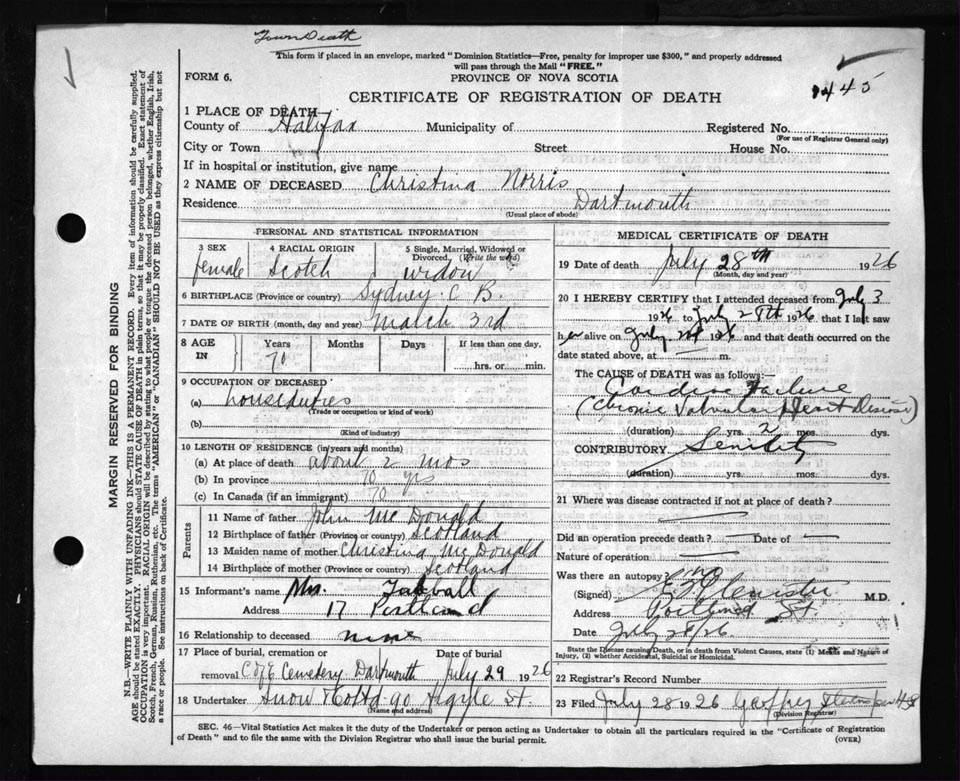 Town Death
This form if placed in an envelope, marked "Dominion Statistics—Free, penalty for improper use $300," and properly addressed
will pass through the Mail "FREE."
FORM 6.
PROVINCE OF NOVA SCOTIA
445
CERTIFICATE OF REGISTRATION OF DEATH
1 PLACE OF DEATH
County of Halifax Municipality of Registered No.
(For use of Registrar General only)
City or Town Street House No.
If in hospital or institution, give name
2 NAME OF DECEASED Christina Norris
Residence Dartmouth
(Usual place of abode)
PERSONAL AND STATISTICAL INFORMATION
3 SEX 4 RACIAL ORIGIN 5 Single, Married, Widowed or
Divorced, (Write the word)
female Scotch widow
6 BIRTHPLACE (Province or country) Sydney C. B.
7 DATE OF BIRTH (month, day and year) March 3rd
8 AGE Years Months Days If less than one day,
IN 70 hrs. or min.
9 OCCUPATION OF DECEASED
(a) houseduties
(Trade or occupation or kind of work)
(b)
(Kind of industry)
10 LENGTH OF RESIDENCE (in years and months)
(a) At place of death about 2 mos
(b) In province 70 yrs
(c) In Canada (if an immigrant) 70
Parents
11 Name of father John Mc Donald
12 Birthplace of father (Province or country) Scotland
13 Maiden name of mother Christina Mc Donald
14 Birthplace of mother (Province or country) Scotland
15 Informant's name Mrs.
Address 17 Portland
16 Relationship to deceased
17 Place of burial, cremation or Date of burial
removal C of E Cemetery Dartmouth July 29 1926
18 Undertaker Snow & Co Ltd 90 Argyle St.
(Name and address)
MEDICAL CERTIFICATE OF DEATH
19 Date of death July 28th 1926
(Month, day and year)
20 I HEREBY CERTIFY that I attended deceased from July 3
1926 to July 28th 1926 that I last saw
her alive on July 1926 and that death occurred on the
date stated above, at m.
The CAUSE OF DEATH was as follows:—
Cardiac Failure
(Chronic Valvular Heart Disease)
(duration) yrs. 2 mos. dys.
CONTRIBUTORY Senility
(duration) yrs. mos. dys.
21 Where was disease contracted if not at place of death?
Did an operation precede death? Date of
Nature of operation
Was there an autopsy? no
(Signed) M.D.
Address Portland St
Date July 28/26.
State the Disease causing Death, or in death from Violent Causes, state (1) Means and Nature of
Injury, (2) whether Accidental, Suicidal or Homicidal.
22 Registrar's Record Number
23 Filed July 28 1926
(Division Registrar)
SEC. 46—Vital Statistics Act makes it the duty of the Undertaker or person acting as Undertaker to obtain all the particulars required in the "Certificate of Registration
of Death" and to file the same with the Division Registrar who shall issue the burial permit.
(OVER)
MARGIN RESERVED FOR BINDING
N.B.—WRITE PLAINLY WITH UNFADING INK—THIS IS A PERMANENT RECORD. Every item of information should be carefully supplied.
AGE should be stated EXACTLY. PHYSICIANS should STATE CAUSE OF DEATH in plain terms, so that it may be properly classified. Exact statement of
OCCUPATION is very important. RACIAL ORIGIN will be described by stating to what people or tongue the deceased person belonged, whether English, Irish,
Scotch, French, German, Russian, Ruthenian, etc. The terms "AMERICAN" or "CANADIAN" SHOULD NOT BE USED as they express citizenship but not
a race or people. See instructions on back of Certificate.